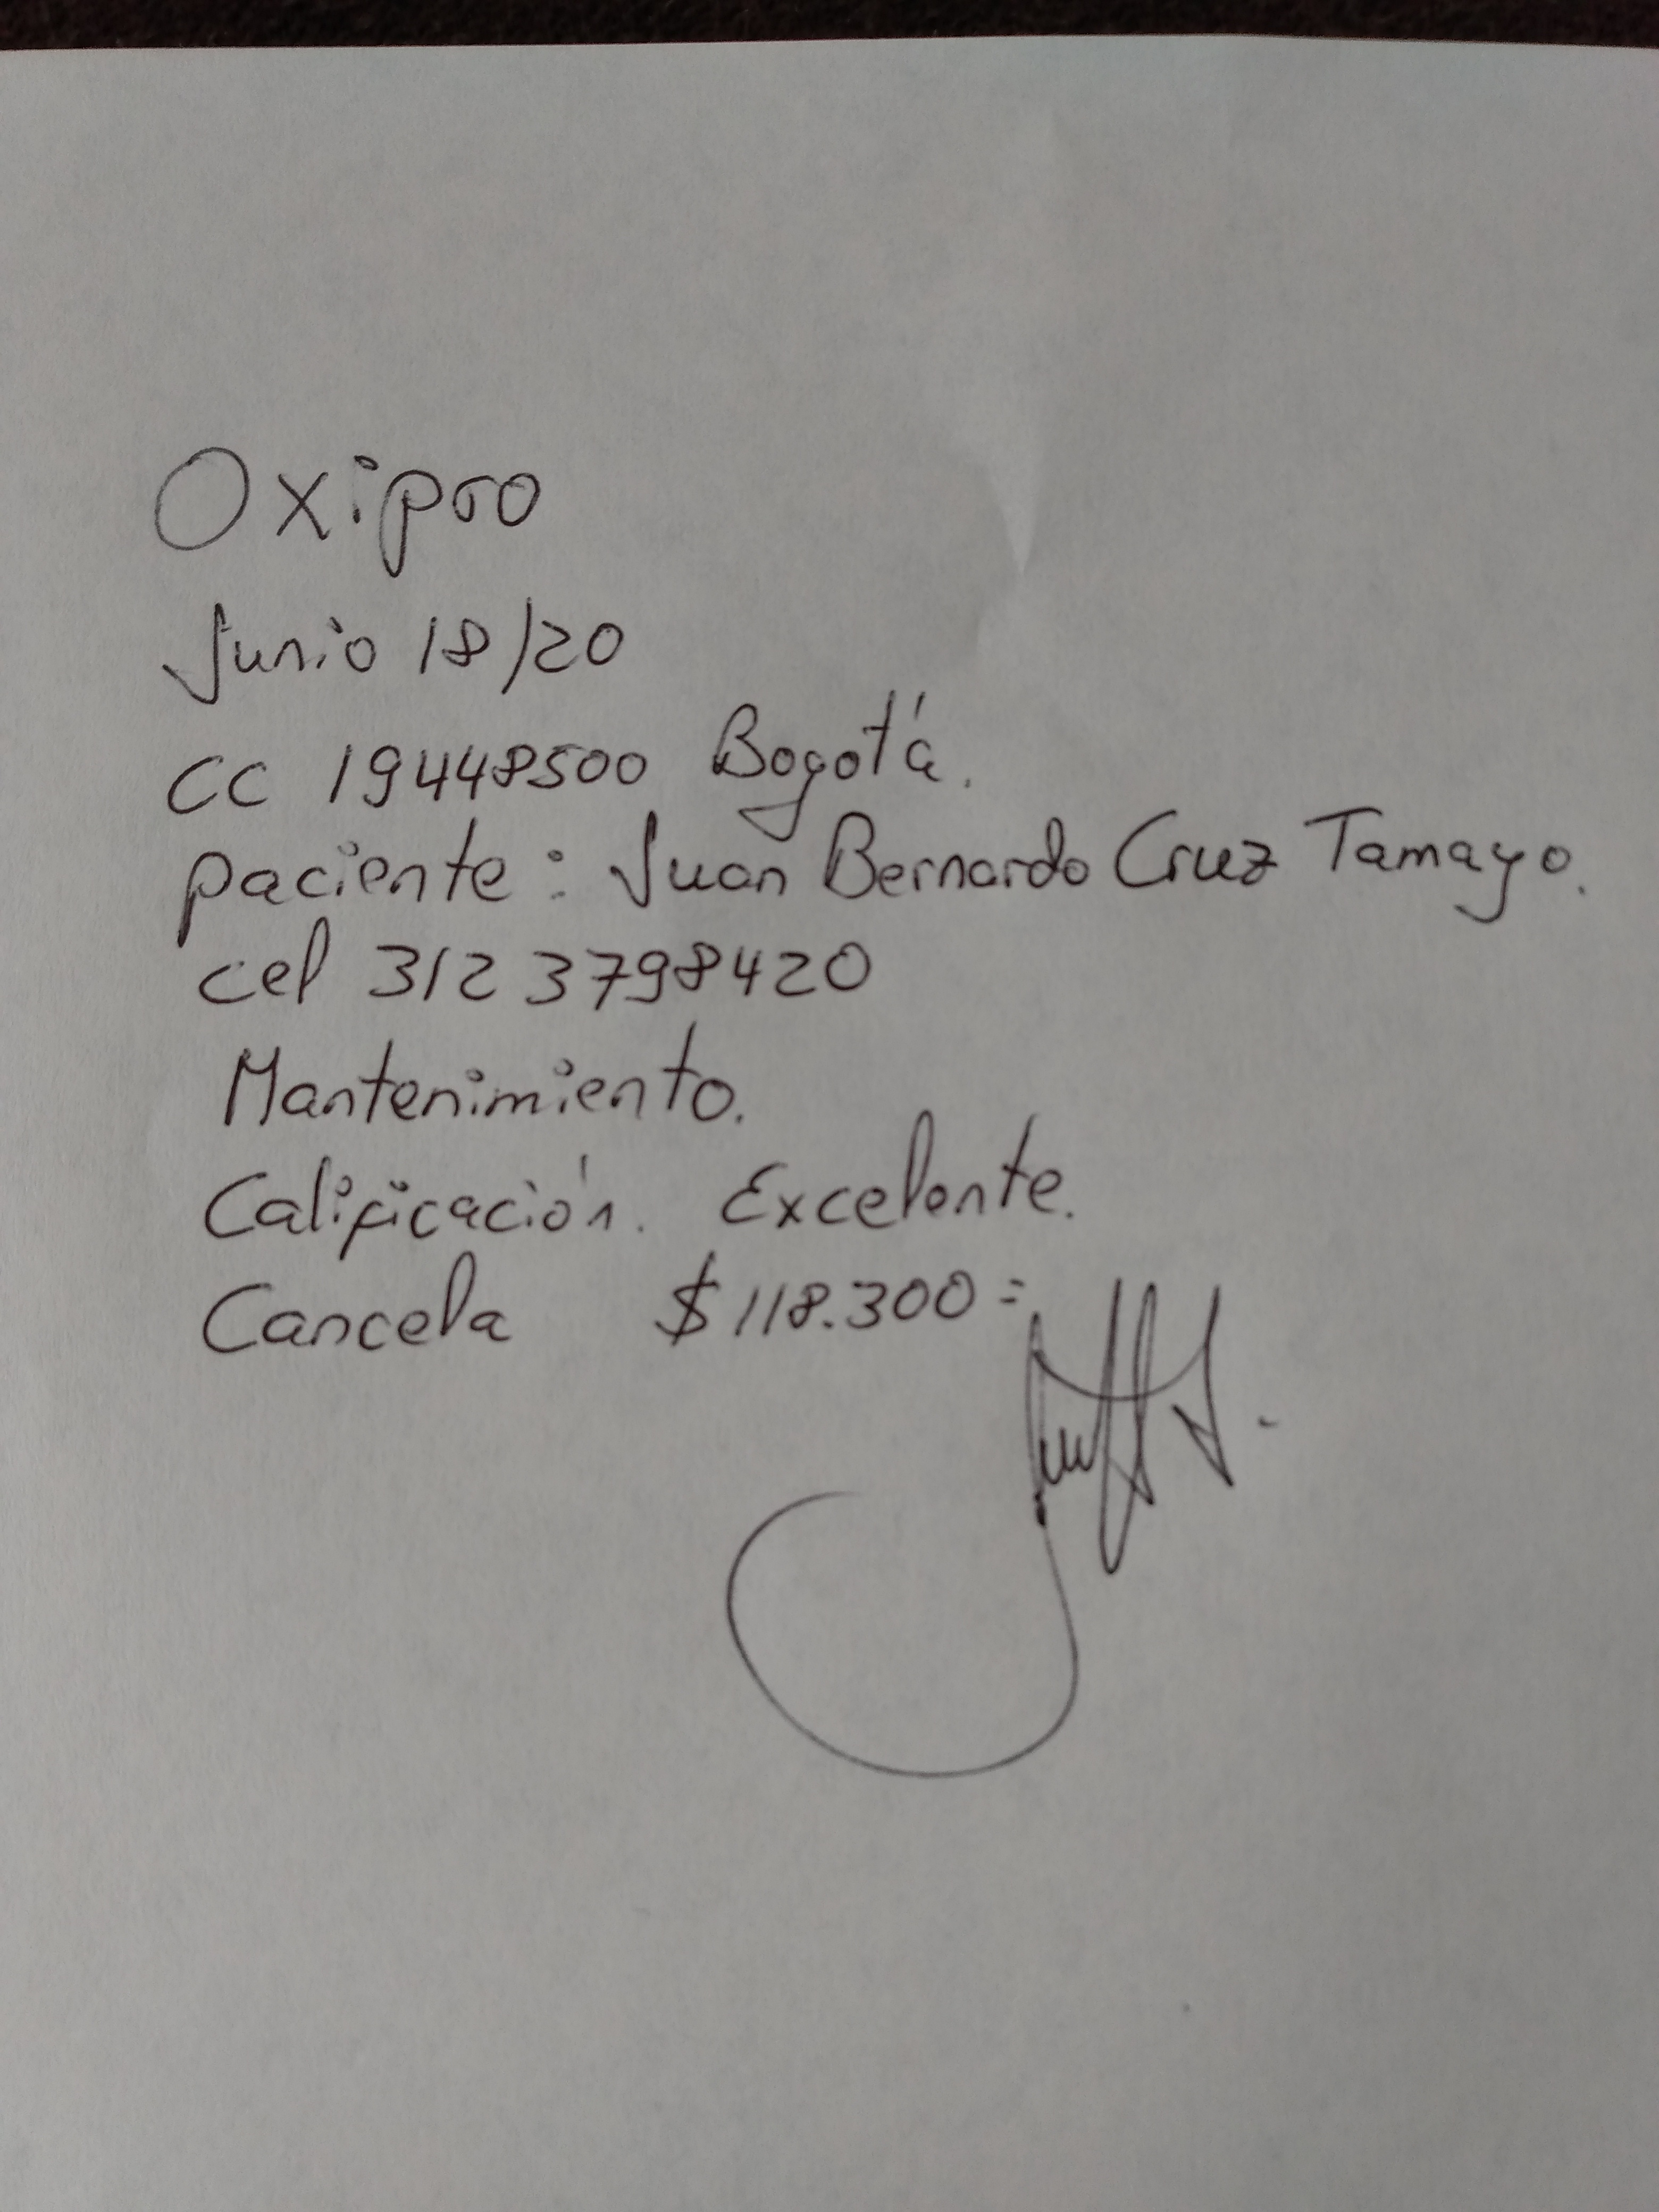 Oxipro
Junio 18/20
CC 19448500 Bogotá.
paciente: Juan Bernardo Cruz Tamayo.
cel 312 3798420
Mantenimiento.
Calificación. Excelente.
Cancela $118.300=